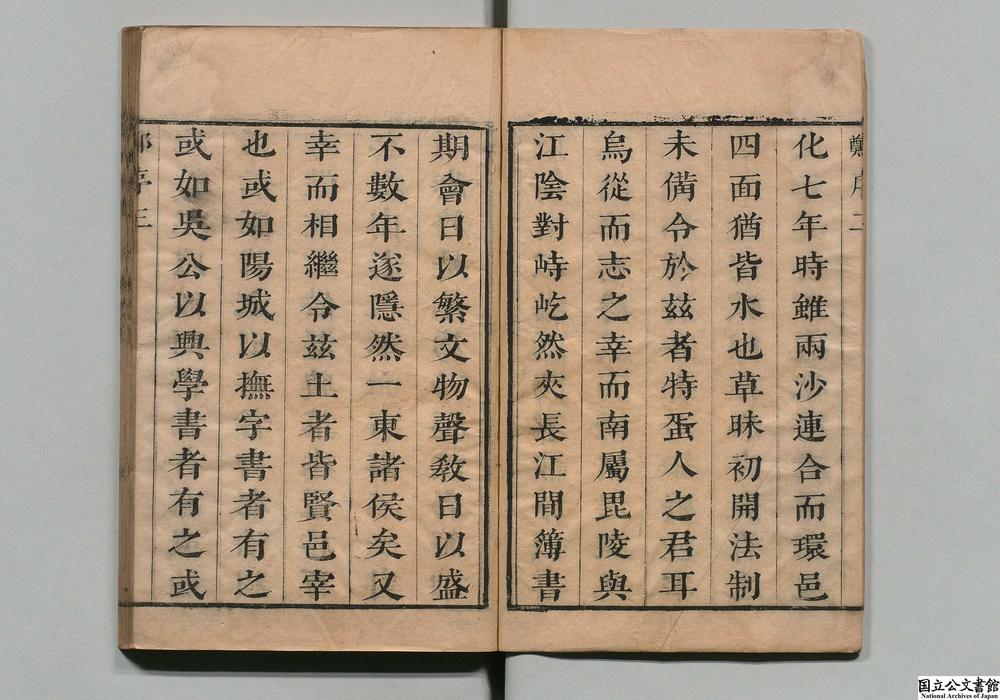 鄭序二
化七年時雖兩沙連合而環邑
四面猶皆水也草昧初開法制
未備令於茲者特蛋人之君耳
烏從而志之幸而南屬毘陵與
江陰對峙屹然夾長江間簿書
期會日以繁文物聲敎日以盛
不數年遂隱然一東諸侯矣又
幸而相繼令茲土者皆賢邑宰
也或如陽城以撫字書者有之
或如吳公以興學書者有之或
國立公文書館
National Archives of Japan